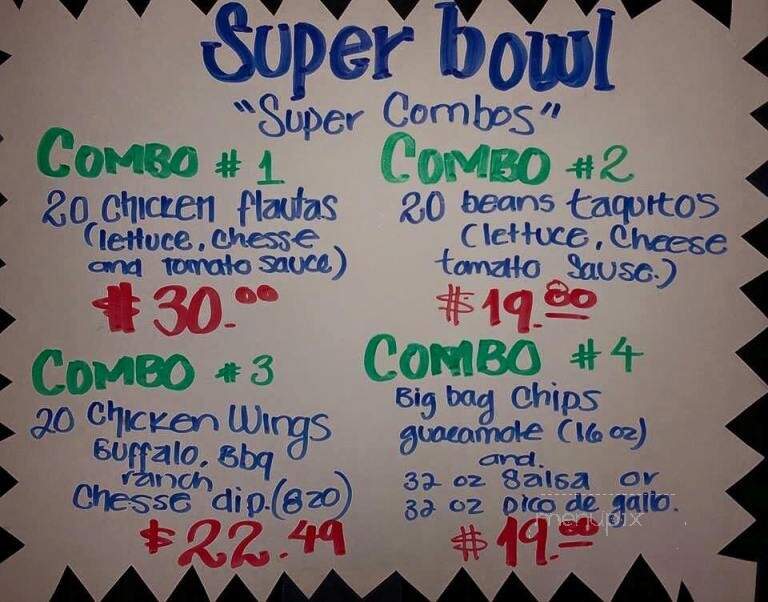 Super bowl
"Super Combos"
COMBO # 1
20 Chicken flautas
(lettuce, chesse
and tomato sauce)
$30.00
COMBO #2
20 beans taquito's
(lettuce, Cheese
tomato Sause.)
$19.80
COMBO #3
20 Chicken Wings
Buffalo, Bbq
ranch
Chesse dip.(8zo)
$22.49
COMBO #4
Big bag Chips
guacamole (16 oz)
and.
32 oz Salsa or
32 oz pico de gallo.
menupix
$19.80